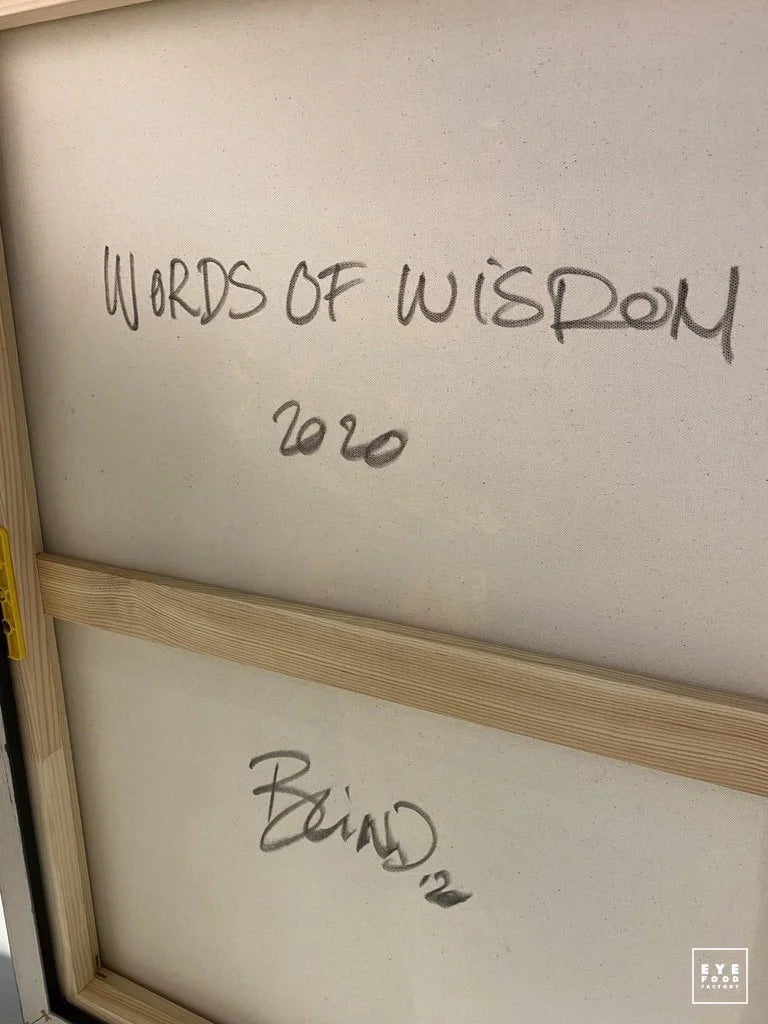 WORDS OF WiSDOM
2020
BLiND.20
EYE
FOOD
FACTORY